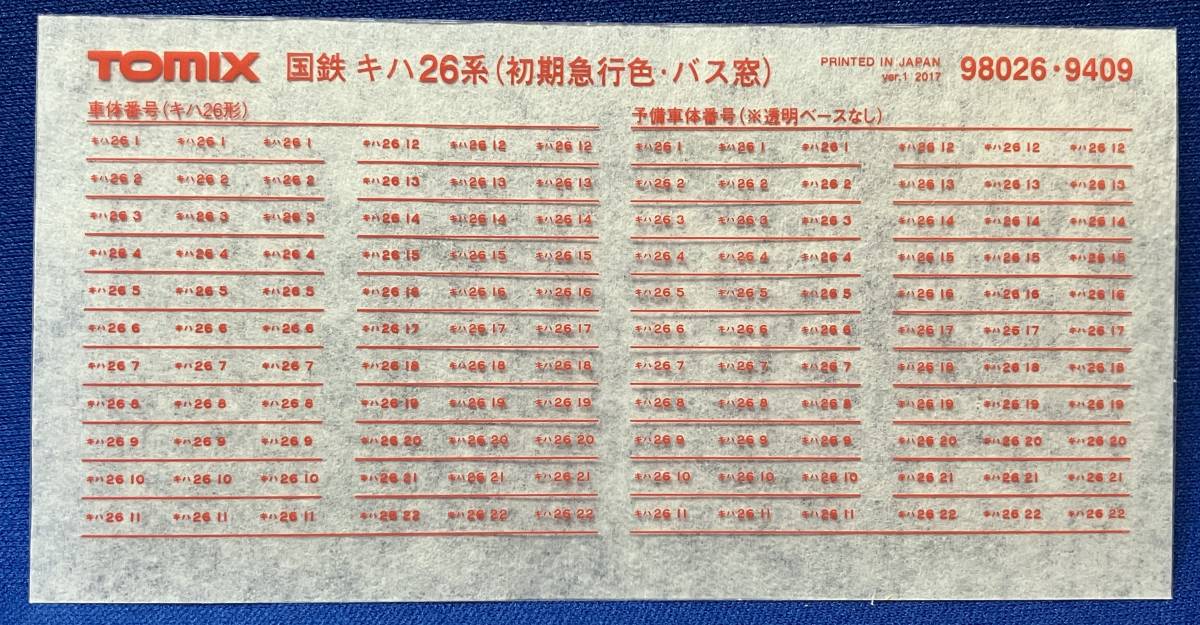 TOMIX 国鉄 キハ26系(初期急行色・バス窓) PRINTED IN JAPAN ver.1 2017 98026・9409
車体番号(キハ26形) 予備車体番号(※透明ベースなし)
キハ26 1 キハ26 1 キハ26 1 キハ26 12 キハ26 12 キハ26 12 キハ26 1 キハ26 1 キハ26 1 キハ26 12 キハ26 12 キハ26 12
キハ26 2 キハ26 2 キハ26 2 キハ26 13 キハ26 13 キハ26 13 キハ26 2 キハ26 2 キハ26 2 キハ26 13 キハ26 13 キハ26 13
キハ26 3 キハ26 3 キハ26 3 キハ26 14 キハ26 14 キハ26 14 キハ26 3 キハ26 3 キハ26 3 キハ26 14 キハ26 14 キハ26 14
キハ26 4 キハ26 4 キハ26 4 キハ26 15 キハ26 15 キハ26 15 キハ26 4 キハ26 4 キハ26 4 キハ26 15 キハ26 15 キハ26 15
キハ26 5 キハ26 5 キハ26 5 キハ26 16 キハ26 16 キハ26 16 キハ26 5 キハ26 5 キハ26 5 キハ26 16 キハ26 16 キハ26 16
キハ26 6 キハ26 6 キハ26 6 キハ26 17 キハ26 17 キハ26 17 キハ26 6 キハ26 6 キハ26 6 キハ26 17 キハ26 17 キハ26 17
キハ26 7 キハ26 7 キハ26 7 キハ26 18 キハ26 18 キハ26 18 キハ26 7 キハ26 7 キハ26 7 キハ26 18 キハ26 18 キハ26 18
キハ26 8 キハ26 8 キハ26 8 キハ26 19 キハ26 19 キハ26 19 キハ26 8 キハ26 8 キハ26 8 キハ26 19 キハ26 19 キハ26 19
キハ26 9 キハ26 9 キハ26 9 キハ26 20 キハ26 20 キハ26 20 キハ26 9 キハ26 9 キハ26 9 キハ26 20 キハ26 20 キハ26 20
キハ26 10 キハ26 10 キハ26 10 キハ26 21 キハ26 21 キハ26 21 キハ26 10 キハ26 10 キハ26 10 キハ26 21 キハ26 21 キハ26 21
キハ26 11 キハ26 11 キハ26 11 キハ26 22 キハ26 22 キハ26 22 キハ26 11 キハ26 11 キハ26 11 キハ26 22 キハ26 22 キハ26 22